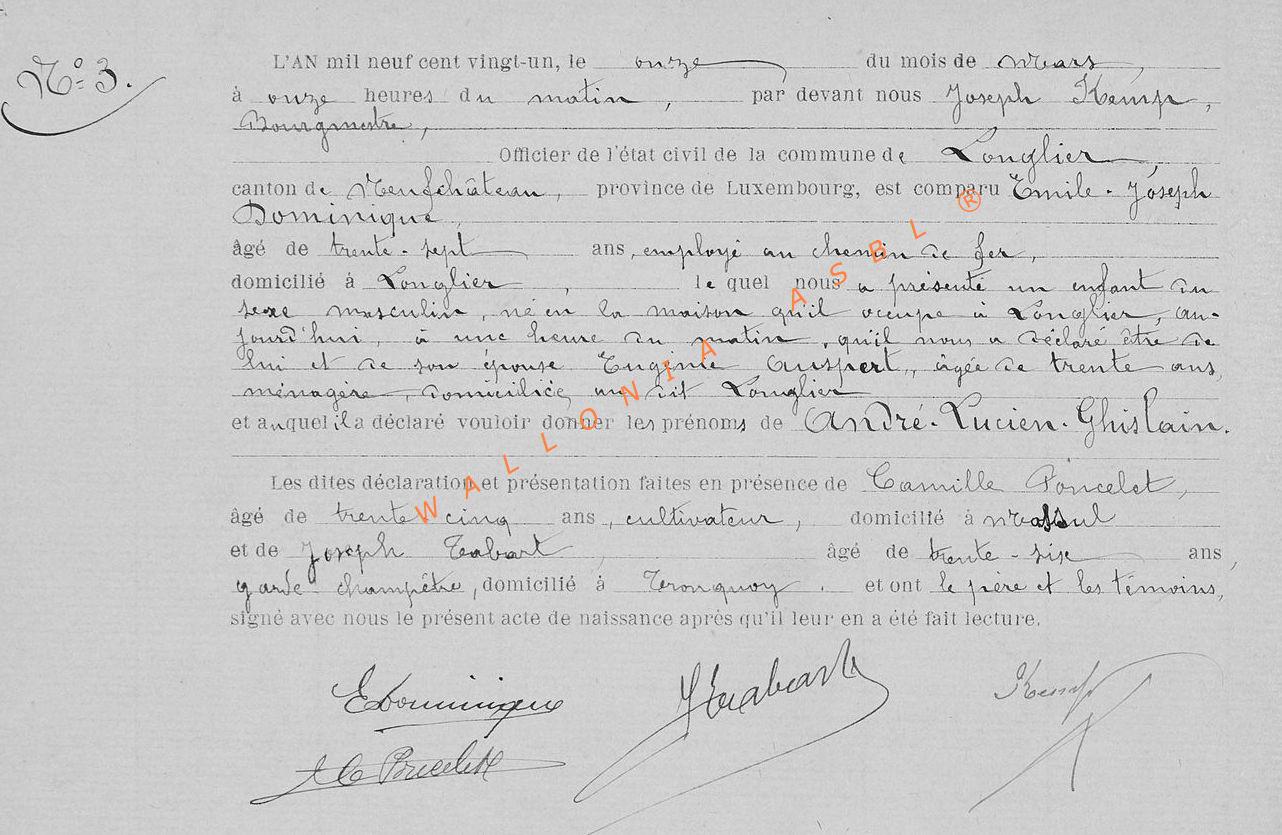 N° 3.
L'AN mil neuf cent vingt-un, le onze du mois de Mars,
à onze heures du matin, par devant nous Joseph Kemp,
Bourgmestre,
Officier de l'état civil de la commune de Longlier,
canton de Neufchâteau, province de Luxembourg, est comparu Emile-Joseph
Dominique,
âgé de trente-sept ans, employé au chemin de fer,
domicilié à Longlier, le quel nous a présenté un enfant du
sexe masculin, né en la maison qu'il occupe à Longlier, au-
jourd'hui, à une heure du matin, qu'il nous a déclaré être de
lui et de son épouse Eugénie Auspert, âgée de trente ans,
ménagère, domiciliée au dit Longlier
et auquel il a déclaré vouloir donner les prénoms de André-Lucien-Ghislain.
Les dites déclaration et présentation faites en présence de Camille Poncelet,
âgé de trente cinq ans, cultivateur, domicilié à Massul
et de Joseph Tabart, âgé de trente-six ans
garde champêtre, domicilié à Tronquoy. et ont le père et les témoins,
signé avec nous le présent acte de naissance après qu'il leur en a été fait lecture.
EDominique
Kemp
WALLONIA ASBL ®